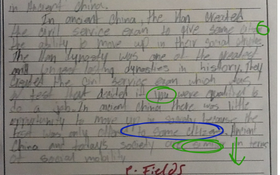 in Ancient China.
In ancient China, the Han created
the civil service exam to give some
the ability to move up in their social
The Han Dynasty was one of the greatest
and longest lasting dynasties in history. They
created the civil service exam which was
a test that decided if you were qualified to
do a job. In ancient China there was little
opportunity to move up in society because the
test was only offered to some citizens. Ancient
China and today's society in terms
of social mobility.
6
P. Fields